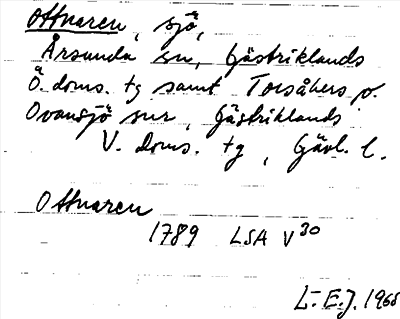 Ottnaren, sjö,
Årsunda sn, Gästriklands
Ö. doms. tg samt Torsåkers o.
Ovansjö snr, Gästriklands
V. doms. tg, Gävl. l.
Ottnaren
1789 LSA V30
L-E.J. 1968